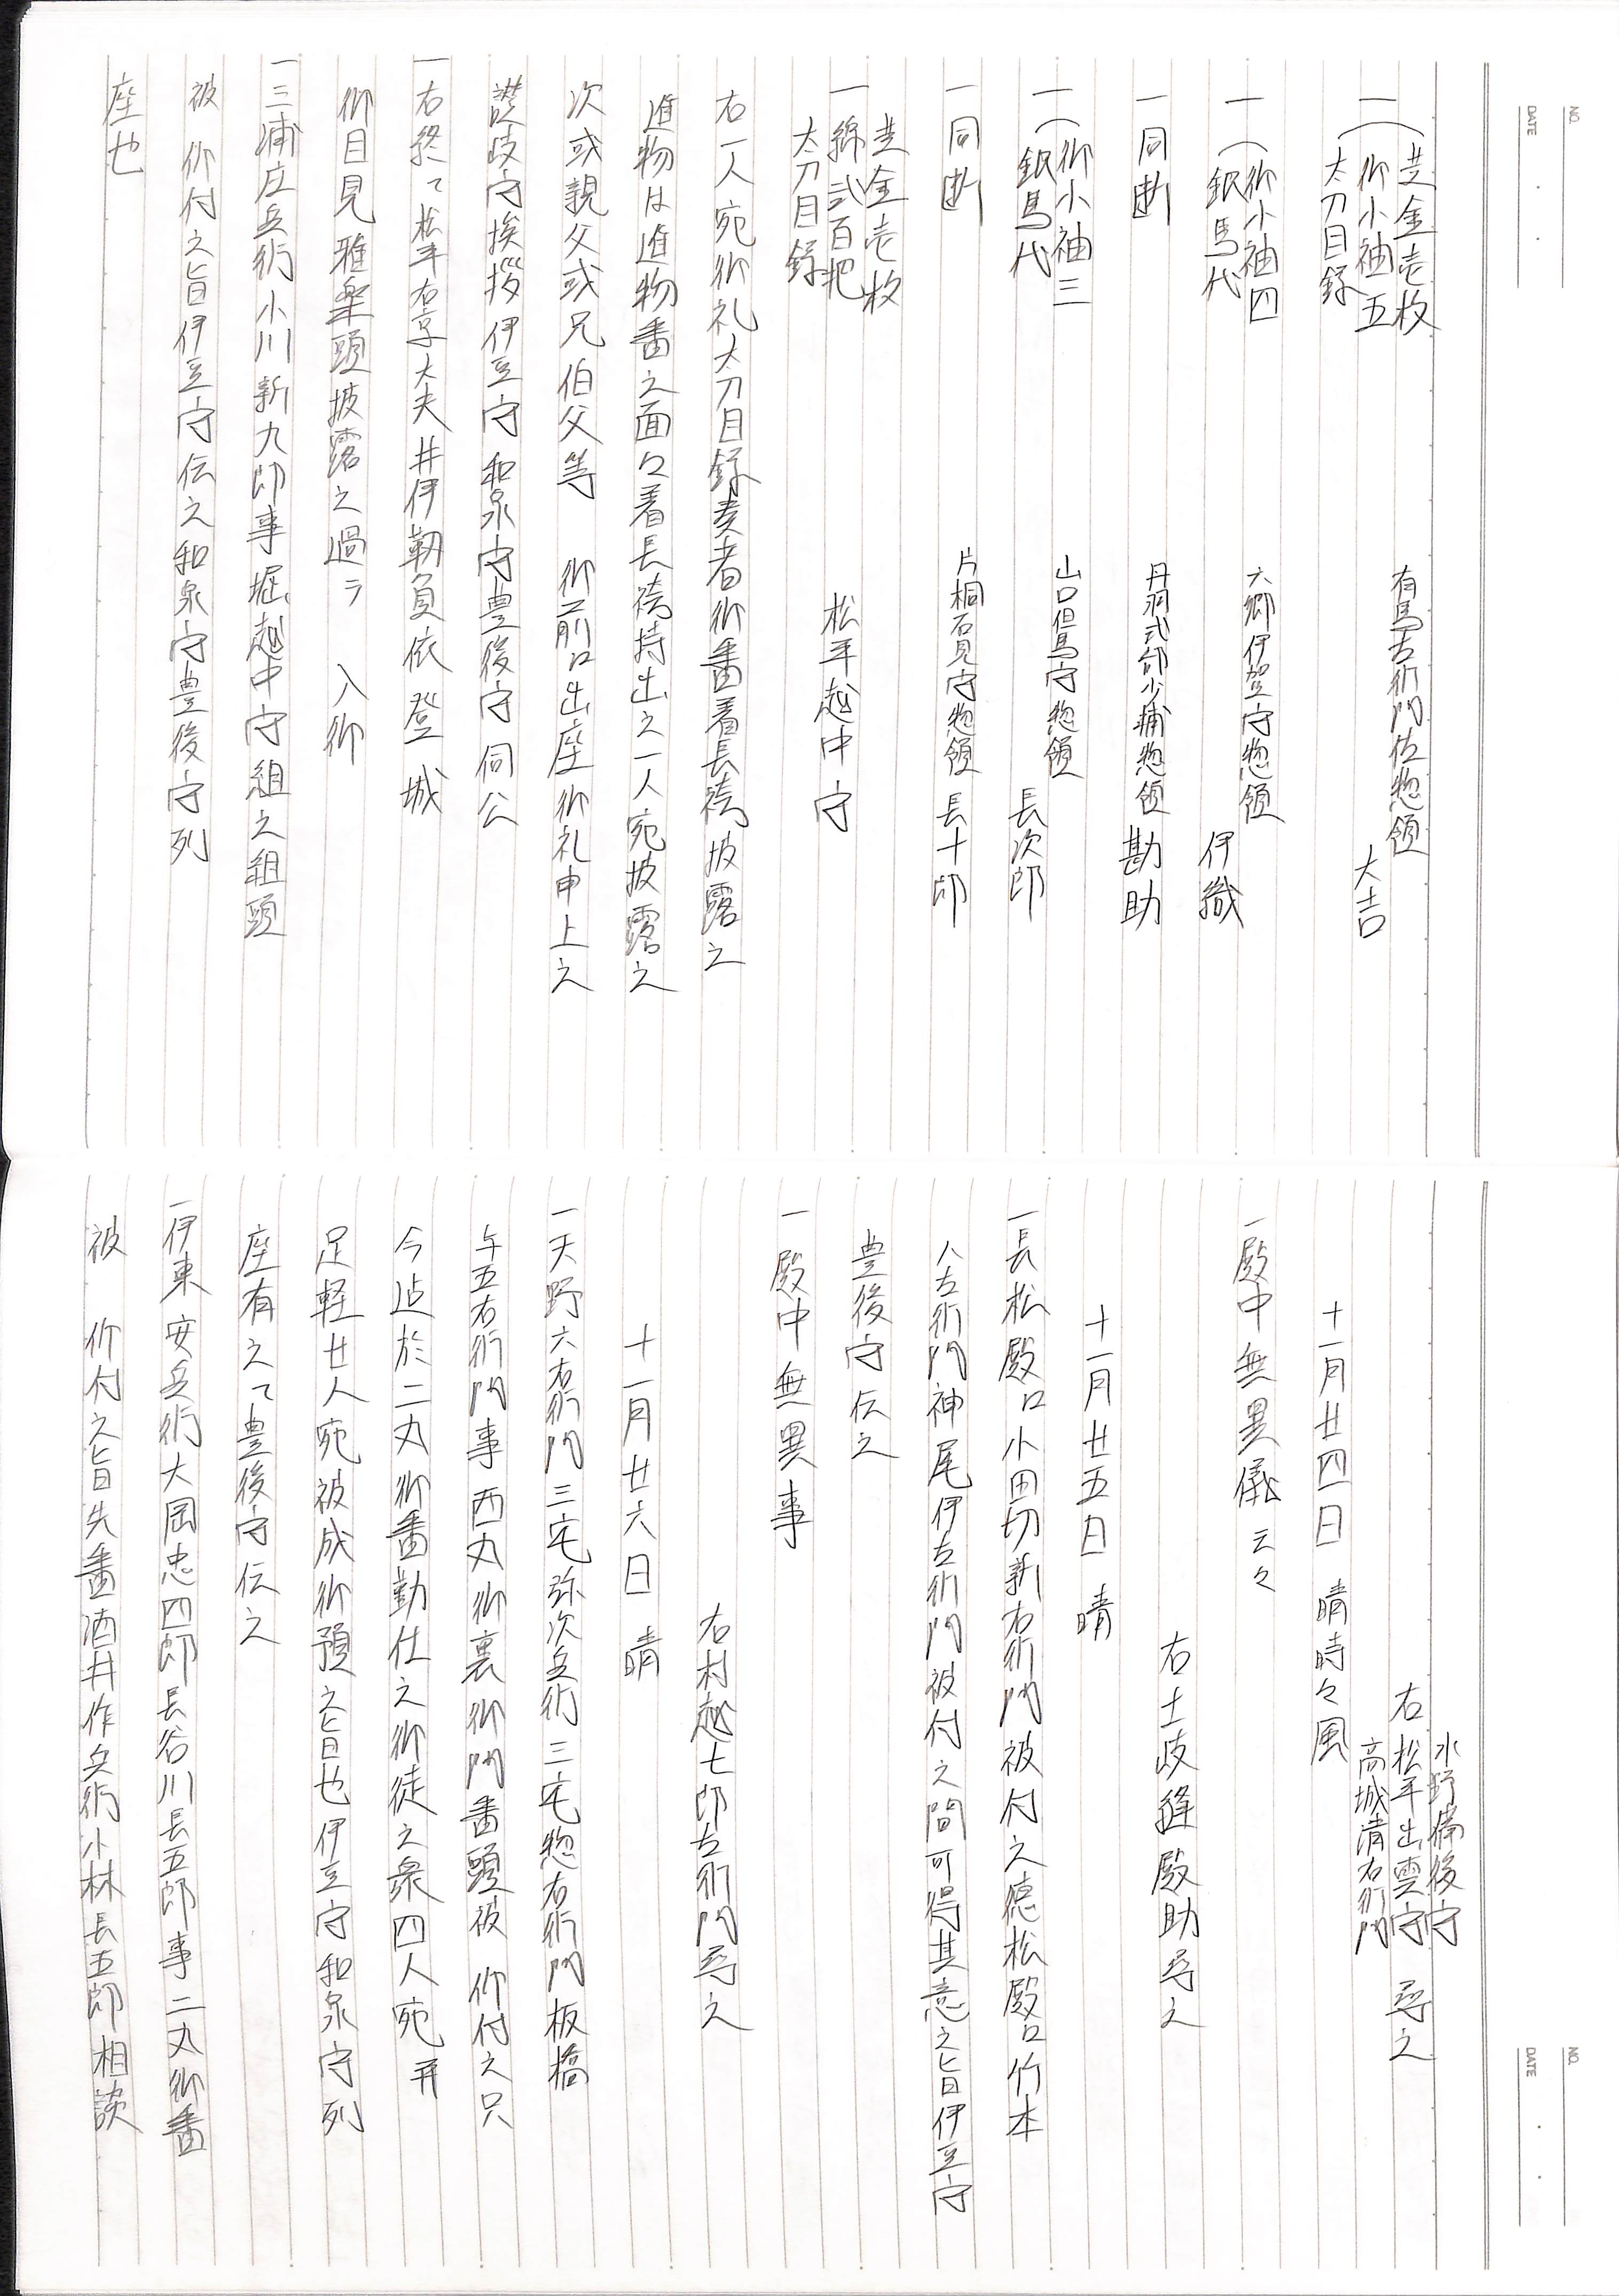 NO.
DATE
一 昔金壱枚
御小袖五
太刀目録
有馬左衛門佐惣領
大吉
一 御小袖四
銀馬代
六郷伊賀守惣領
伊織
一 同断
丹羽式部少輔惣領 勘助
一 御小袖三
銀馬代
山口但馬守惣領
長次郎
一 同断
片桐石見守惣領 長十郎
昔金壱枚
一 綿弐百把
太刀目録
松平越中守
右一人宛御礼太刀目録奏者御番着長袴披露之
進物は進物番之面々着長袴持出之一人宛披露之
次或親父或兄伯父等 御前江出座御礼申上之
讃岐守挨拶伊豆守和泉守豊後守伺公
一右終て松平右京大夫井伊靱負依登城
御目見雅楽頭披露之過テ 入御
一三浦庄兵衛小川新九郎事堀越中守組之組頭
被 仰付之旨伊豆守伝之和泉守豊後守列
座也
NO.
DATE
水野備後守
右松平出雲守 尋之
高城清右衛門
十一月廿四日 晴時々風
一殿中無異儀云々
右土岐縫殿助尋之
十一月廿五日 晴
一長松殿江小田切新右衛門被付之徳松殿江竹本
八左衛門神尾伊左衛門被付之間可得其意之旨伊豆守
豊後守伝之
一殿中無異事
右村越七郎左衛門尋之
十一月廿六日 晴
一天野六右衛門三宅弥次兵衛三宅惣右衛門板橋
午五右衛門事西丸御裏御門番頭被 仰付之只
今迠於二丸御番勤仕之御徒之衆四人宛并
足軽廿人宛被成御預之旨也伊豆守和泉守列
座有之て豊後守伝之
一伊東安兵衛大岡忠四郎長谷川長五郎事二丸御番
被 仰付之旨先番酒井作兵衛小林長五郎相談